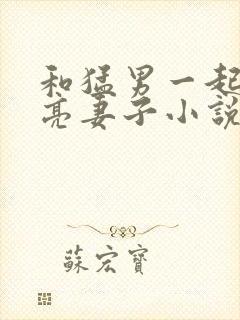 和猛男一起
亮妻子小說
蘇宏寶